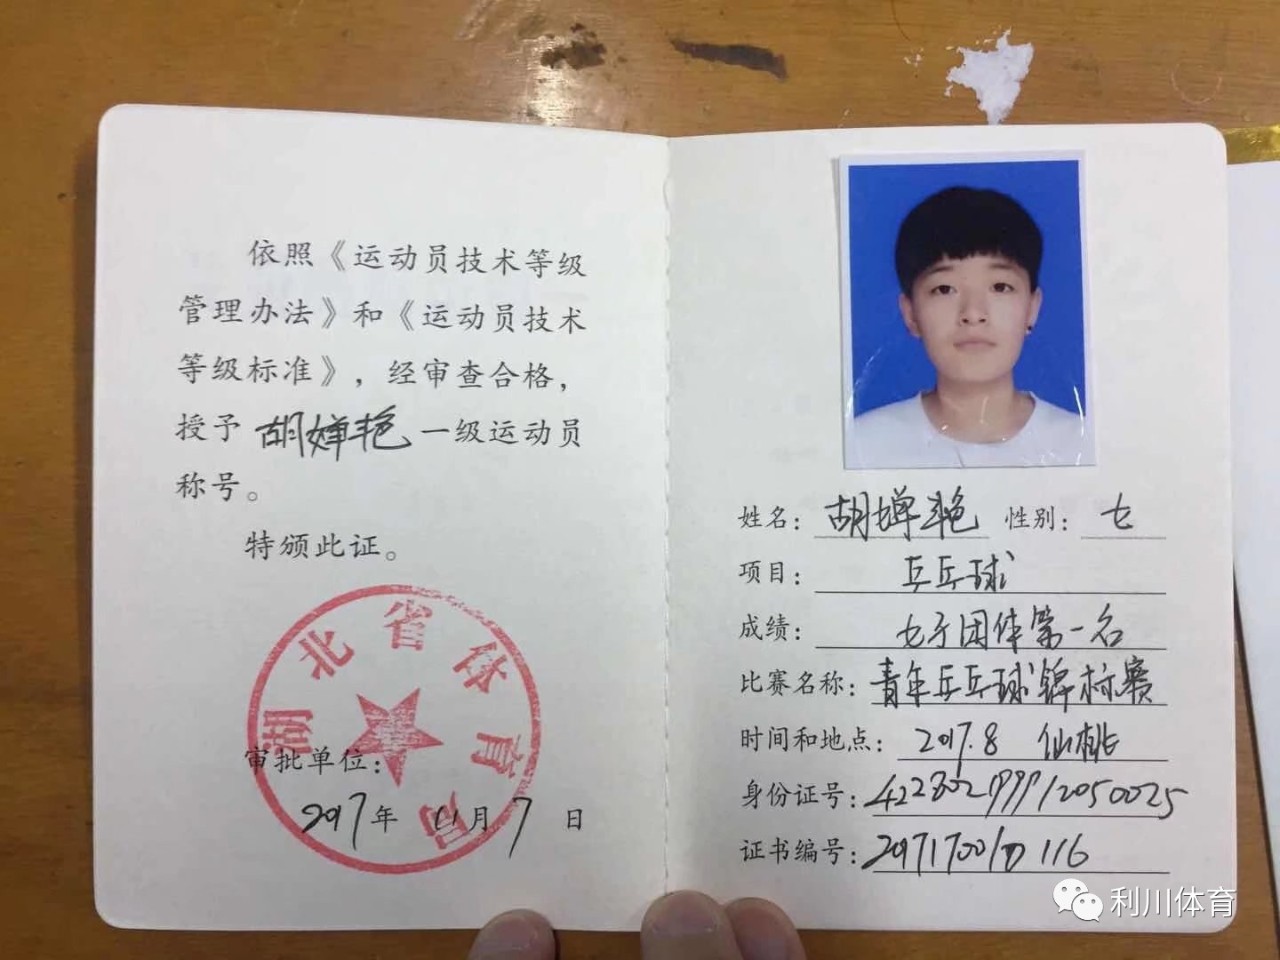 依照《运动员技术等级
管理办法》和《运动员技术
等级标准》，经审查合格，
授予 胡婵艳 一级运动员
称号。
特颁此证。
湖北省体育局
审批单位：
2017年 11月 7 日
姓名：胡婵艳 性别：女
项目：乒乓球
成绩：女子团体第一名
比赛名称：青年乒乓球锦标赛
时间和地点：2017.8 仙桃
身份证号：422802199912050025
证书编号：
利川体育